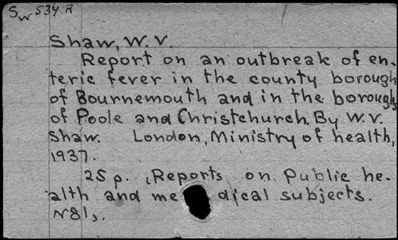 Sw 534 R
Shaw, W.V.
Report on an outbreak of en-
teric fever in the county borough
of Bournemouth and in the borough
of Poole and Christchurch, By W.V.
Shaw. London, Ministry of health,
1937.
25 p. (Reports on Public he-
alth and me dical subjects.
N81).